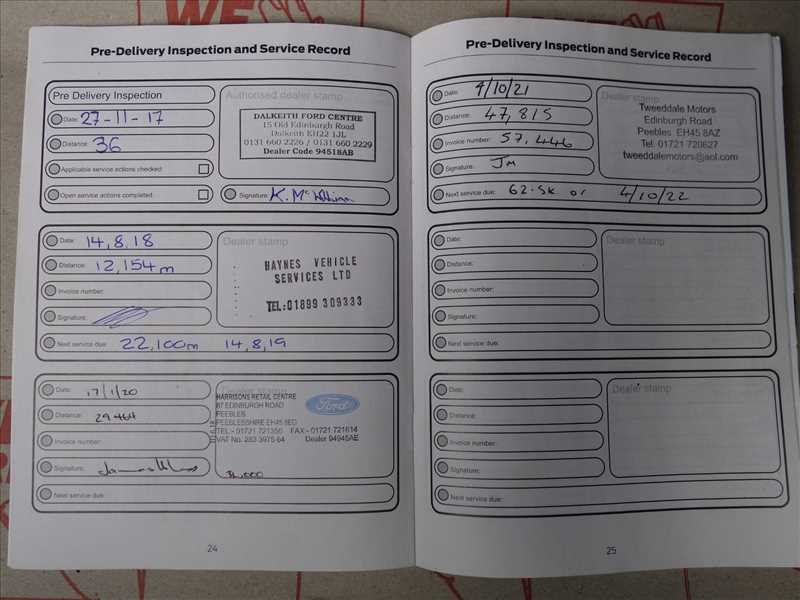 WE
Pre-Delivery Inspection and Service Record
Pre Delivery Inspection
Date: 27-11-17
Distance: 36
Applicable service actions checked:
Open service actions completed:
Authorised dealer stamp
DALKEITH FORD CENTRE
15 Old Edinburgh Road
Dalkeith EH22 1JL
0131 660 2226 / 0131 660 2229
Dealer Code 94518AB
Signature:
Date: 14,8,18
Distance: 12,154m
Invoice number:
Signature:
Next service due: 22,100m 14,8,19
Dealer stamp
HAYNES VEHICLE
SERVICES LTD
TEL:01899 309333
Date: 17/1/20
Distance: 29464
Invoice number:
Signature:
Next service due:
Dealer stamp
HARRISONS RETAIL CENTRE
87 EDINBURGH ROAD
PEEBLES
PEEBLESSHIRE EH45 8ED
TEL:- 01721 721350 FAX:- 01721 721614
VAT No. 263 3975 64 Dealer 94945AE
Ford
24
Pre-Delivery Inspection and Service Record
Date: 4/10/21
Distance: 47,815
Invoice number: 57,446
Signature: Jm
Next service due: 62.5K or 4/10/22
Dealer stamp
Tweeddale Motors
Edinburgh Road
Peebles EH45 8AZ
Tel: 01721 720627
tweeddalemotors@aol.com
Date:
Distance:
Invoice number:
Signature:
Next service due:
Dealer stamp
Date:
Distance:
Invoice number:
Signature:
Next service due:
Dealer stamp
25